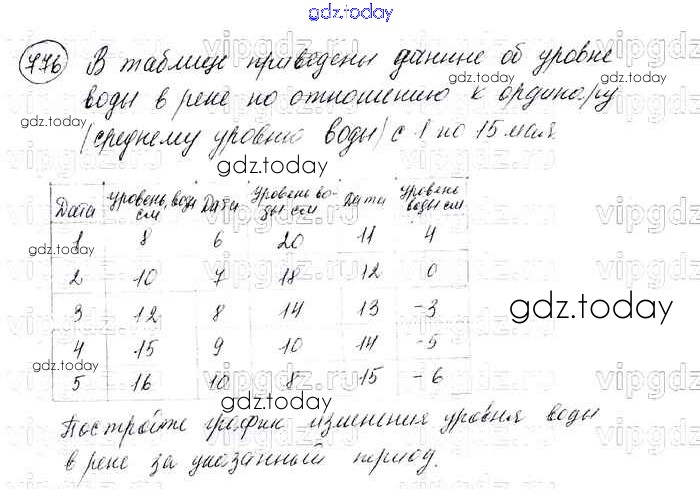 gdz.today
776 В таблице приведены данные об уровне
воды в реке по отношению к ординару
(среднему уровню воды) с 1 по 15 мая.
Дата уровень, воды см Дата Уровень воды см Дата уровень воды см
1 8 6 20 11 4
2 10 7 18 12 0
3 12 8 14 13 -3
4 15 9 10 14 -5
5 16 10 8 15 -6
Постройте график изменения уровня воды
в реке за указанный период.
gdz.today
gdz.today
gdz.today
gdz.today
gdz.today
gdz.today
gdz.today
gdz.today